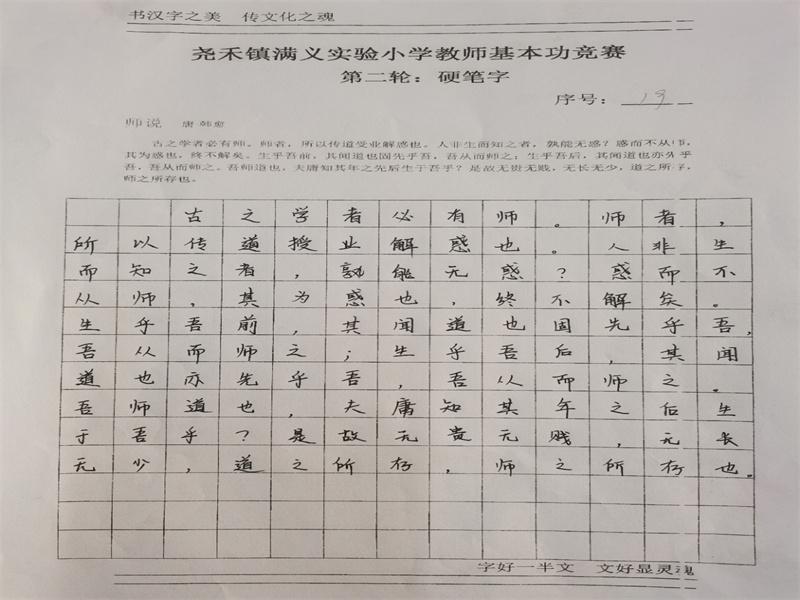 书汉字之美 传文化之魂
尧禾镇满义实验小学教师基本功竞赛
第二轮：硬笔字
序号：19
师说 唐 韩愈
古之学者必有师。师者，所以传道受业解惑也。人非生而知之者，孰能无惑？惑而不从师，
其为惑也，终不解矣。生乎吾前，其闻道也固先乎吾，吾从而师之；生乎吾后，其闻道也亦先乎
吾，吾从而师之。吾师道也，夫庸知其年之先后生于吾乎？是故无贵无贱，无长无少，道之所存，
师之所存也。
古之学者必有师。师者，
所以传道授业解惑也。人非生
而知之者，孰能无惑？惑而不
从师，其为惑也，终不解矣。
生乎吾前，其闻道也固先乎吾，
吾从而师之；生乎吾后，其闻
道也亦先乎吾，吾从而师之。
吾师道也，夫庸知其年之后生
于吾乎？是故无贵无贱，无长
无少，道之所存，师之所存也。
字好一半文 文好显灵魂